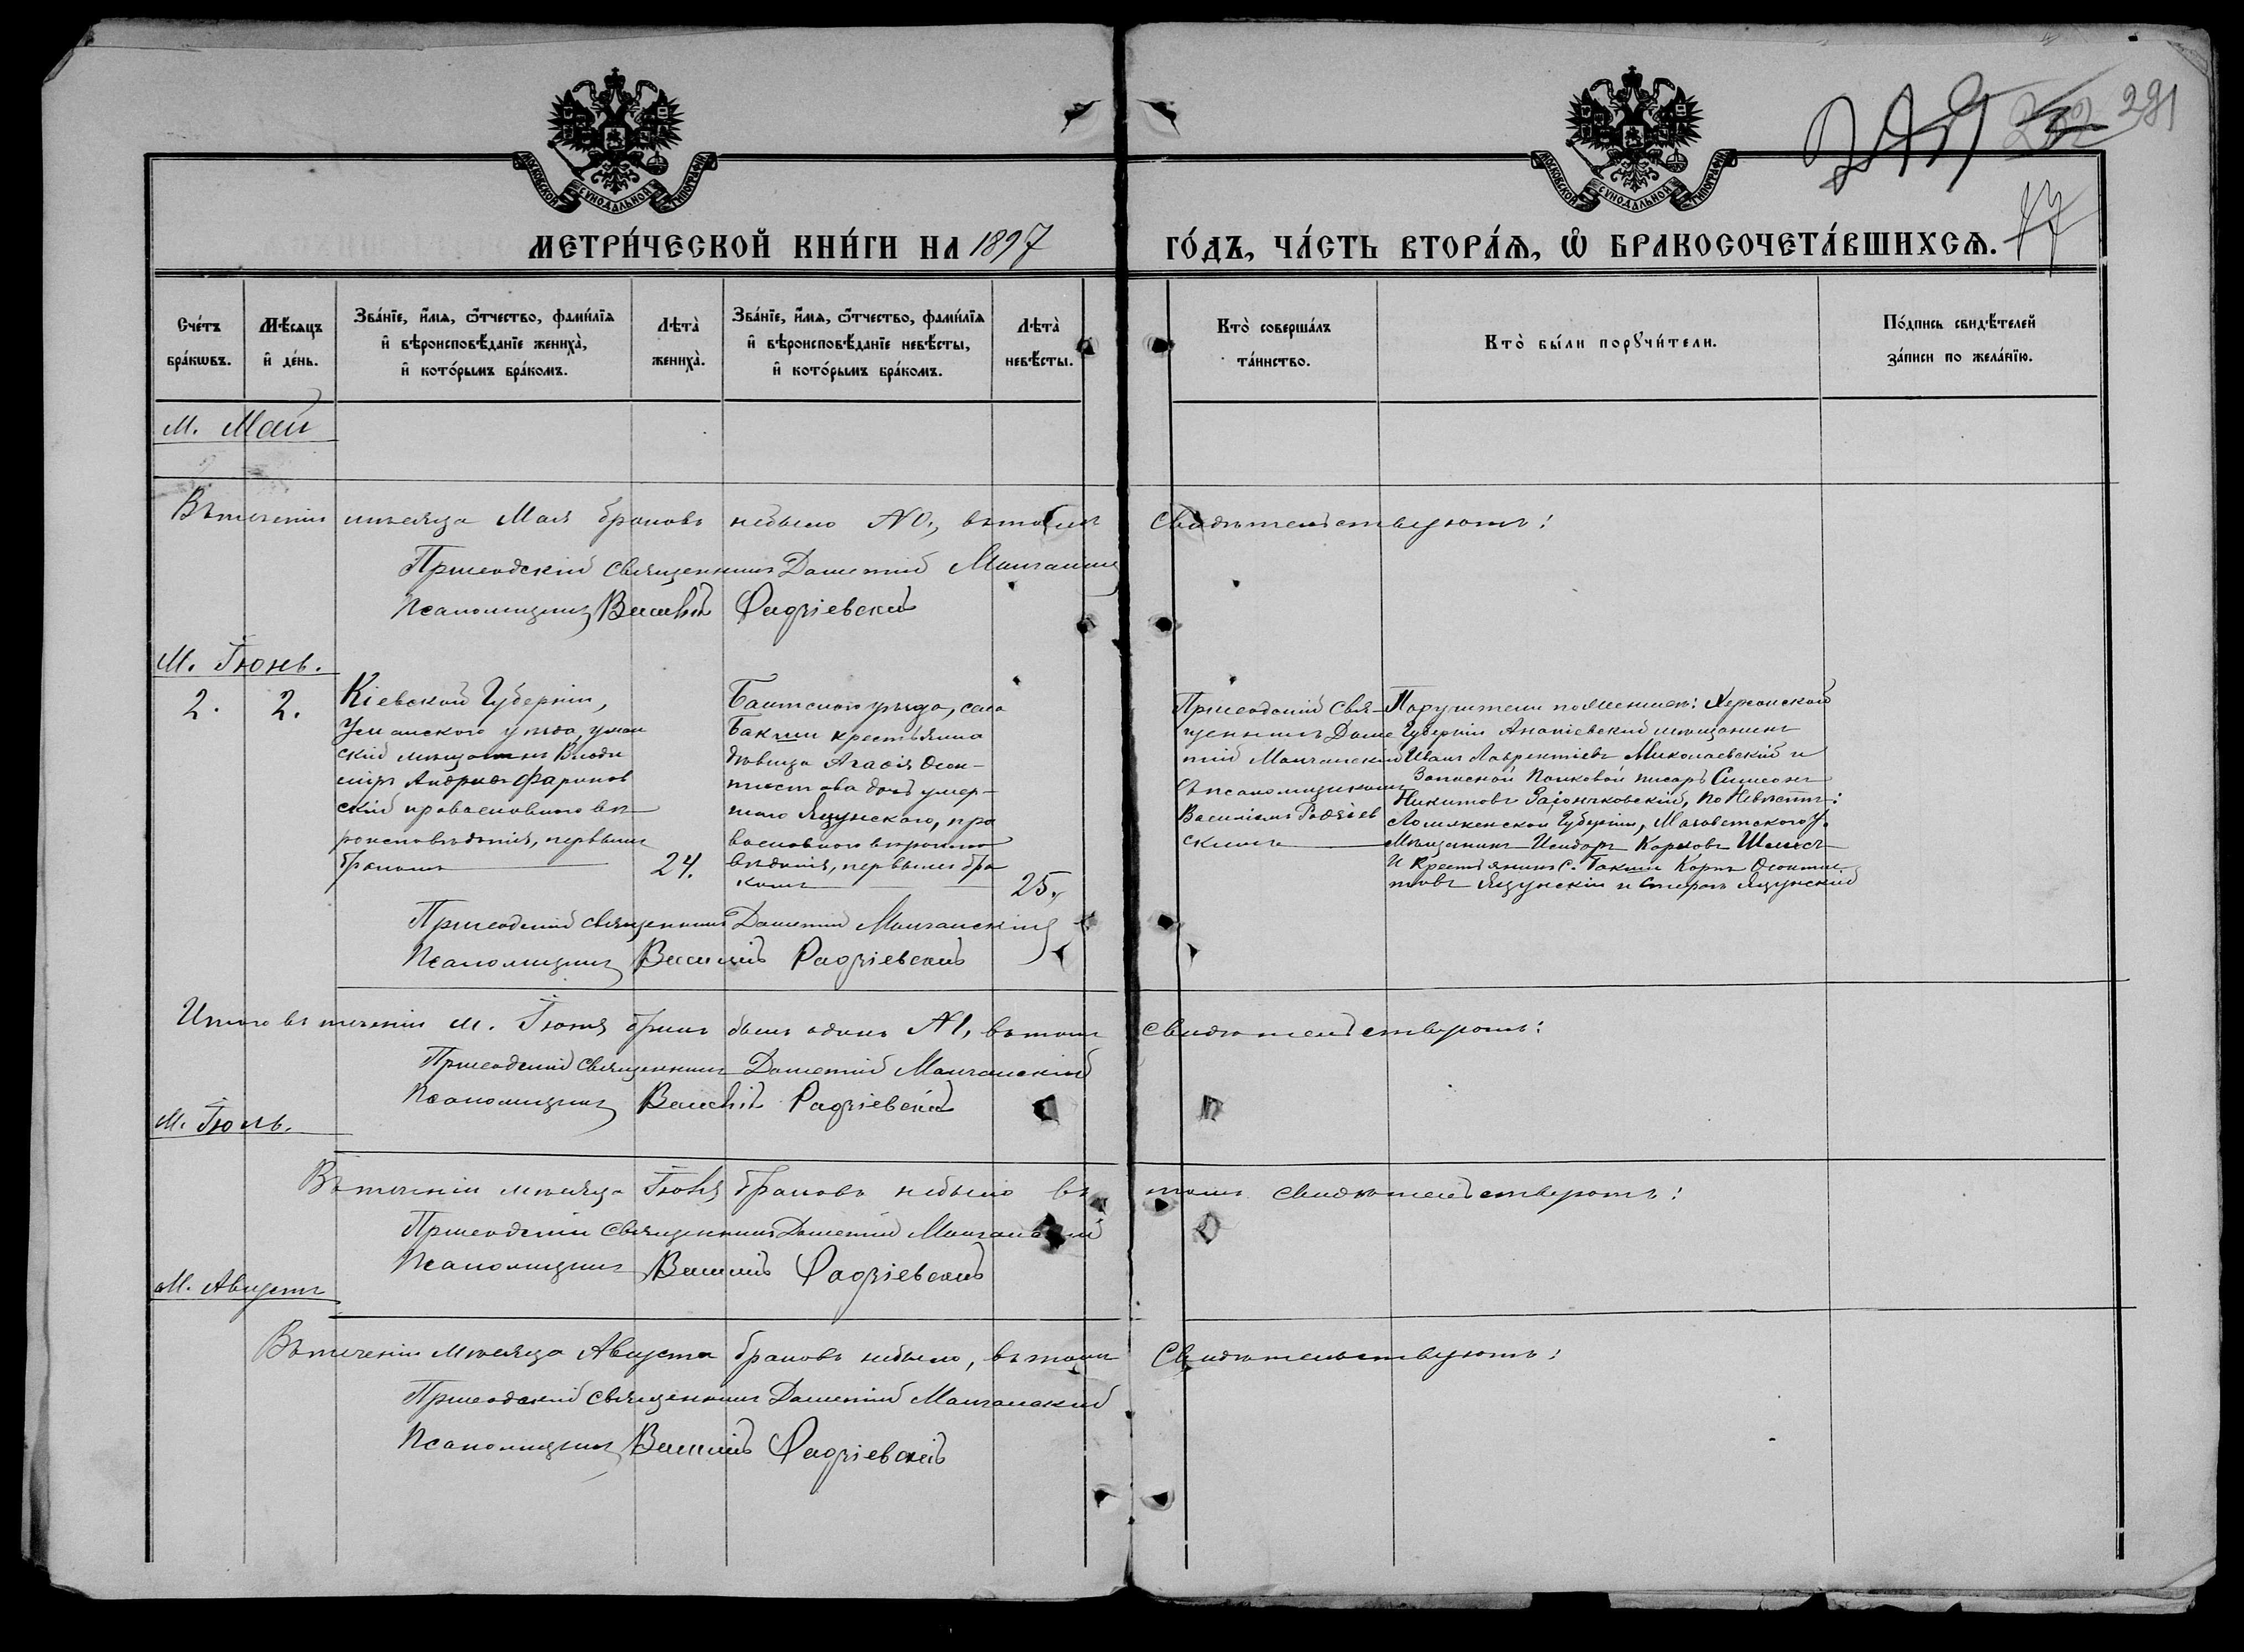 291
77
МОСКОВСКОЙ СУНОДАЛЬНОЙ ТИПОГРАФІИ
МОСКОВСКОЙ СУНОДАЛЬНОЙ ТИПОГРАФІИ
МЕТРИ́ЧЕСКОЙ КНИ́ГИ НА 1897 ГО́ДЪ, ЧА́СТЬ ВТОРА́Ѧ, Ѽ БРАКОСОЧЕТА́ВШИХСѦ.
Сче́тъ бра́кѡвъ.
Мѣ́сѧцъ и҆ де́нь.
Зва́нїе, и҆́мѧ, ѻ҆́тчество, фами́лїѧ и҆ вѣроисповѣ́данїе жениха̀, и҆ кото́рымъ бра́комъ.
Лѣта̀ жениха̀.
Зва́нїе, и҆́мѧ, ѻ҆́тчество, фами́лїѧ и҆ вѣроисповѣ́данїе невѣ́сты, и҆ кото́рымъ бра́комъ.
Лѣта̀ невѣ́сты.
Кто̀ соверша́лъ та́инство.
Кто̀ бы́ли порꙋчи́тели.
По́дпись свидѣ́телей за́писи по жела́нїю.
М. Май
Въ теченіи мѣсяца Мая браковъ небыло №0, въ томъ свидѣтельствуютъ:
Приходскій священникъ Дометій
Псаломщикъ Василій Радзіевскій
М. Іюнь.
2.
2.
Кіевской Губерніи,
Уманскаго уѣзда, уман
скій мѣщанинъ Влади
міръ Андреевъ Фаринов
скій православнаго вѣ
роисповѣданія, первымъ
бракомъ
24.
Балтскаго уѣзда, села
Бакши крестьянка
дѣвица Агафія Ѳеок-
тистова дочь умер-
шаго Яцунскаго, пра
вославнаго вѣроиспо
вѣданія, первымъ бра
комъ
25.
Приходскій Свя-
щенникъ Доме
тій
съ псаломщикомъ
Василіемъ Радзіев
скимъ
Поручители по женихѣ: Херсонской
Губерніи Ананіевскій мѣщанинъ
Иванъ Лаврентіевъ Миколаевскій и
Запасной Полковой писарь Симеонъ
Никитовъ Заіончковскій, по Невѣстѣ:
Губерніи,
Мѣщанинъ Исидоръ Карповъ
и Крестьянинъ С. Бакши Карпъ Ѳеоктис
товъ Яцунскій и Яцунскій
Приходскій священникъ Дометій
Псаломщикъ Василій Радзіевскій
Итого въ теченіи м. Іюня бракъ былъ одинъ №1, въ томъ свидѣтельствуютъ:
Приходскій священникъ Дометій
Псаломщикъ Василій Радзіевскій
М. Іюль.
Въ теченіи мѣсяца Іюля браковъ небыло въ томъ свидѣтельствуютъ:
Приходскій священникъ Дометій
Псаломщикъ Василій Радзіевскій
М. Августъ
Въ теченіи мѣсяца Августа браковъ небыло, въ томъ Свидѣтельствуютъ:
Приходскій священникъ Дометій
Псаломщикъ Василій Радзіевскій